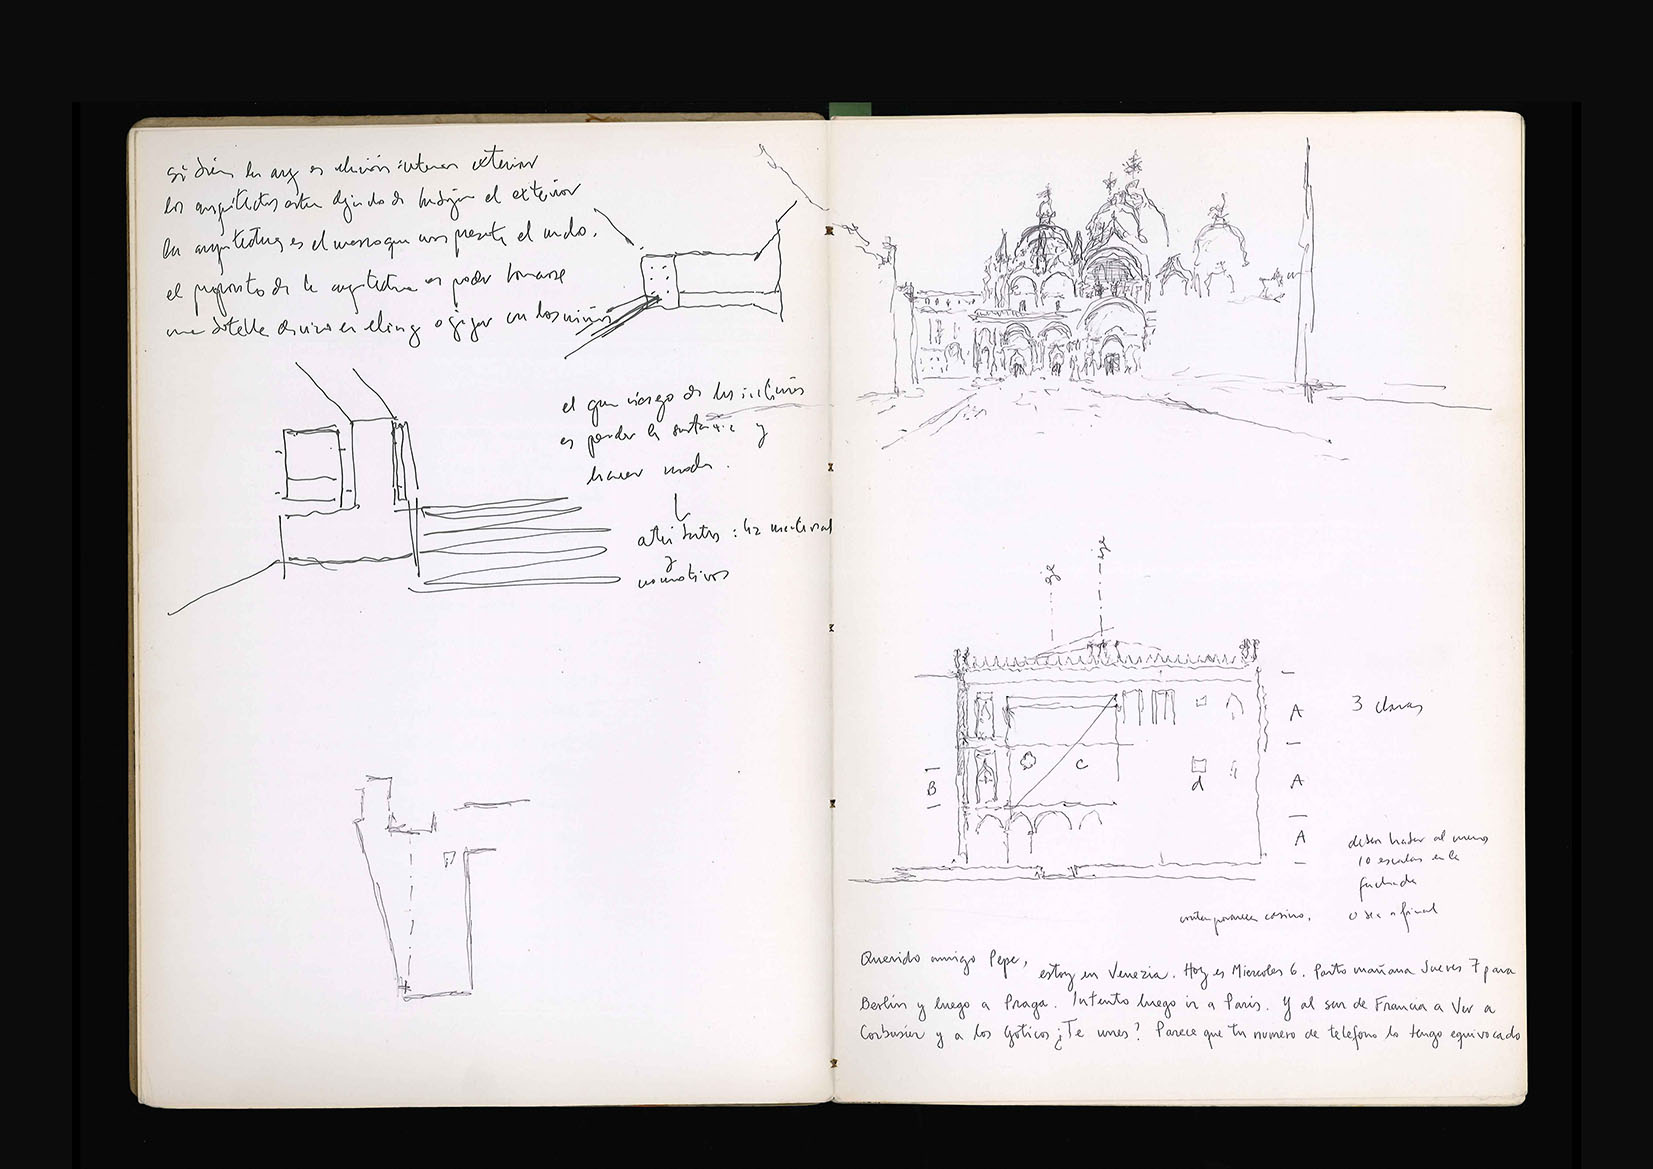 si bien la arq es relación interior exterior
los arquitectos están dejando de trabajar el exterior
la arquitectura es el marco que nos presenta el mundo.
el proposito de la arquitectura es poder tomarse
una botella de vino en el living o jugar con los niños
el gran riesgo de las
es perder la y
hacer moda.
atributos : luz material
y
normativos
eje
eje
A
3 claves
B
c
d
A
A
deben haber al menos
10 escalas en la
fachada
casino, o sea afinal
Querido amigo Pepe, estoy en Venezia. Hoy es Miercoles 6. Parto mañana Jueves 7 para
Berlín y luego a Praga. Intento luego ir a Paris. Y al sur de Francia a Ver a
Corbusier y a los Goticos ¿Te unes? Parece que tu numero de telefono lo tengo equivocado